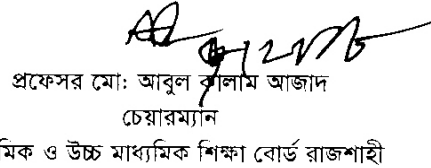 প্রফেসর মো: আবুল কালাম আজাদ
চেয়ারম্যান
মিক ও উচ্চ মাধ্যমিক শিক্ষা বোর্ড রাজশাহী